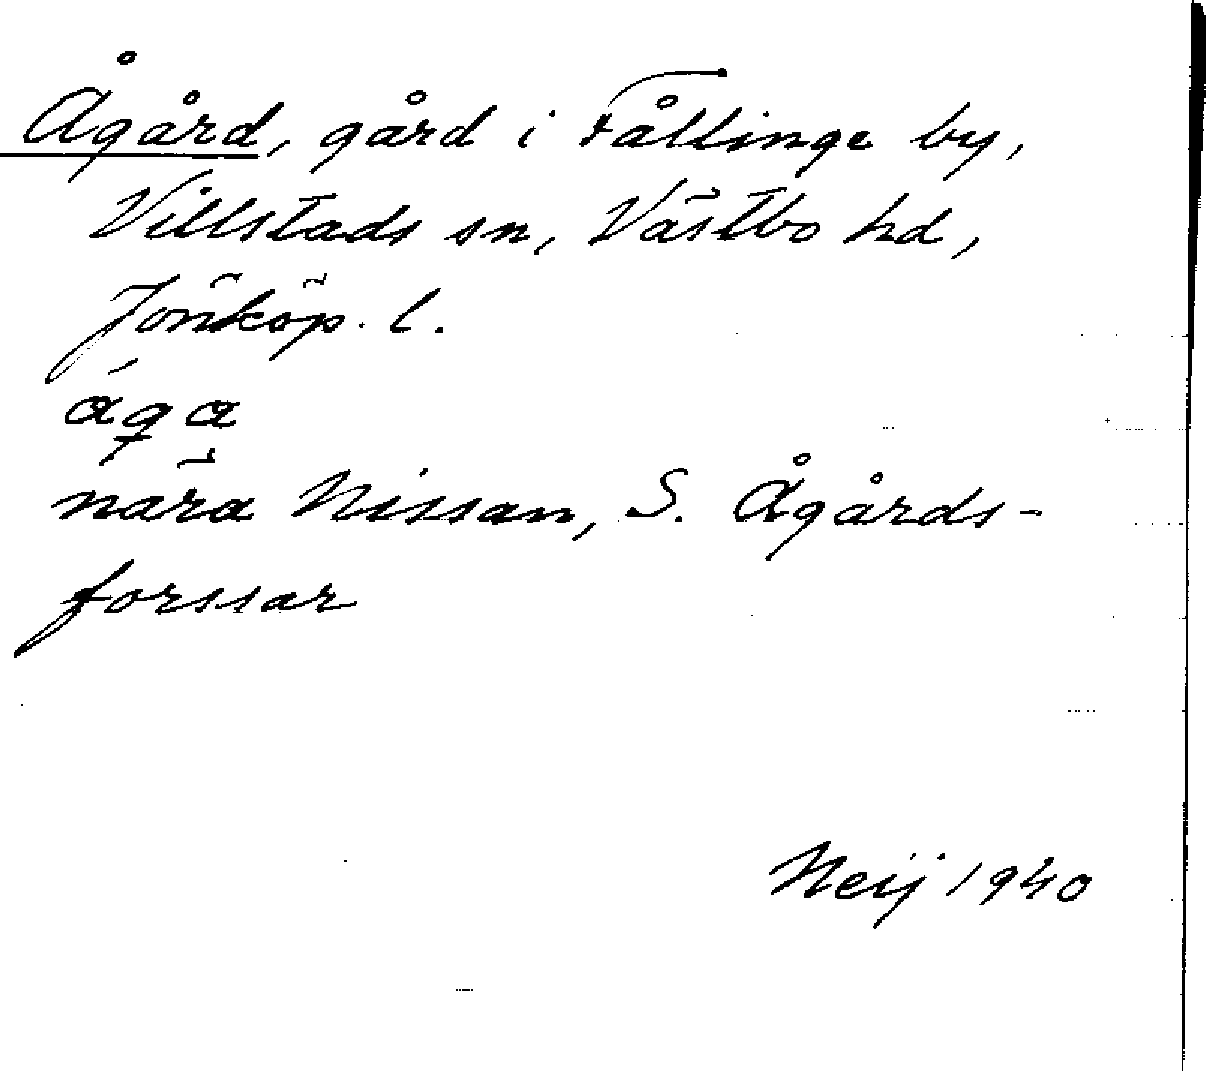 Ågård, gård i Fållinge by,
Villstads sn, Västbo hd,
Jönköp. l.
ága
nära Nissan, S. Ågårds-
forssar
Neij 1940